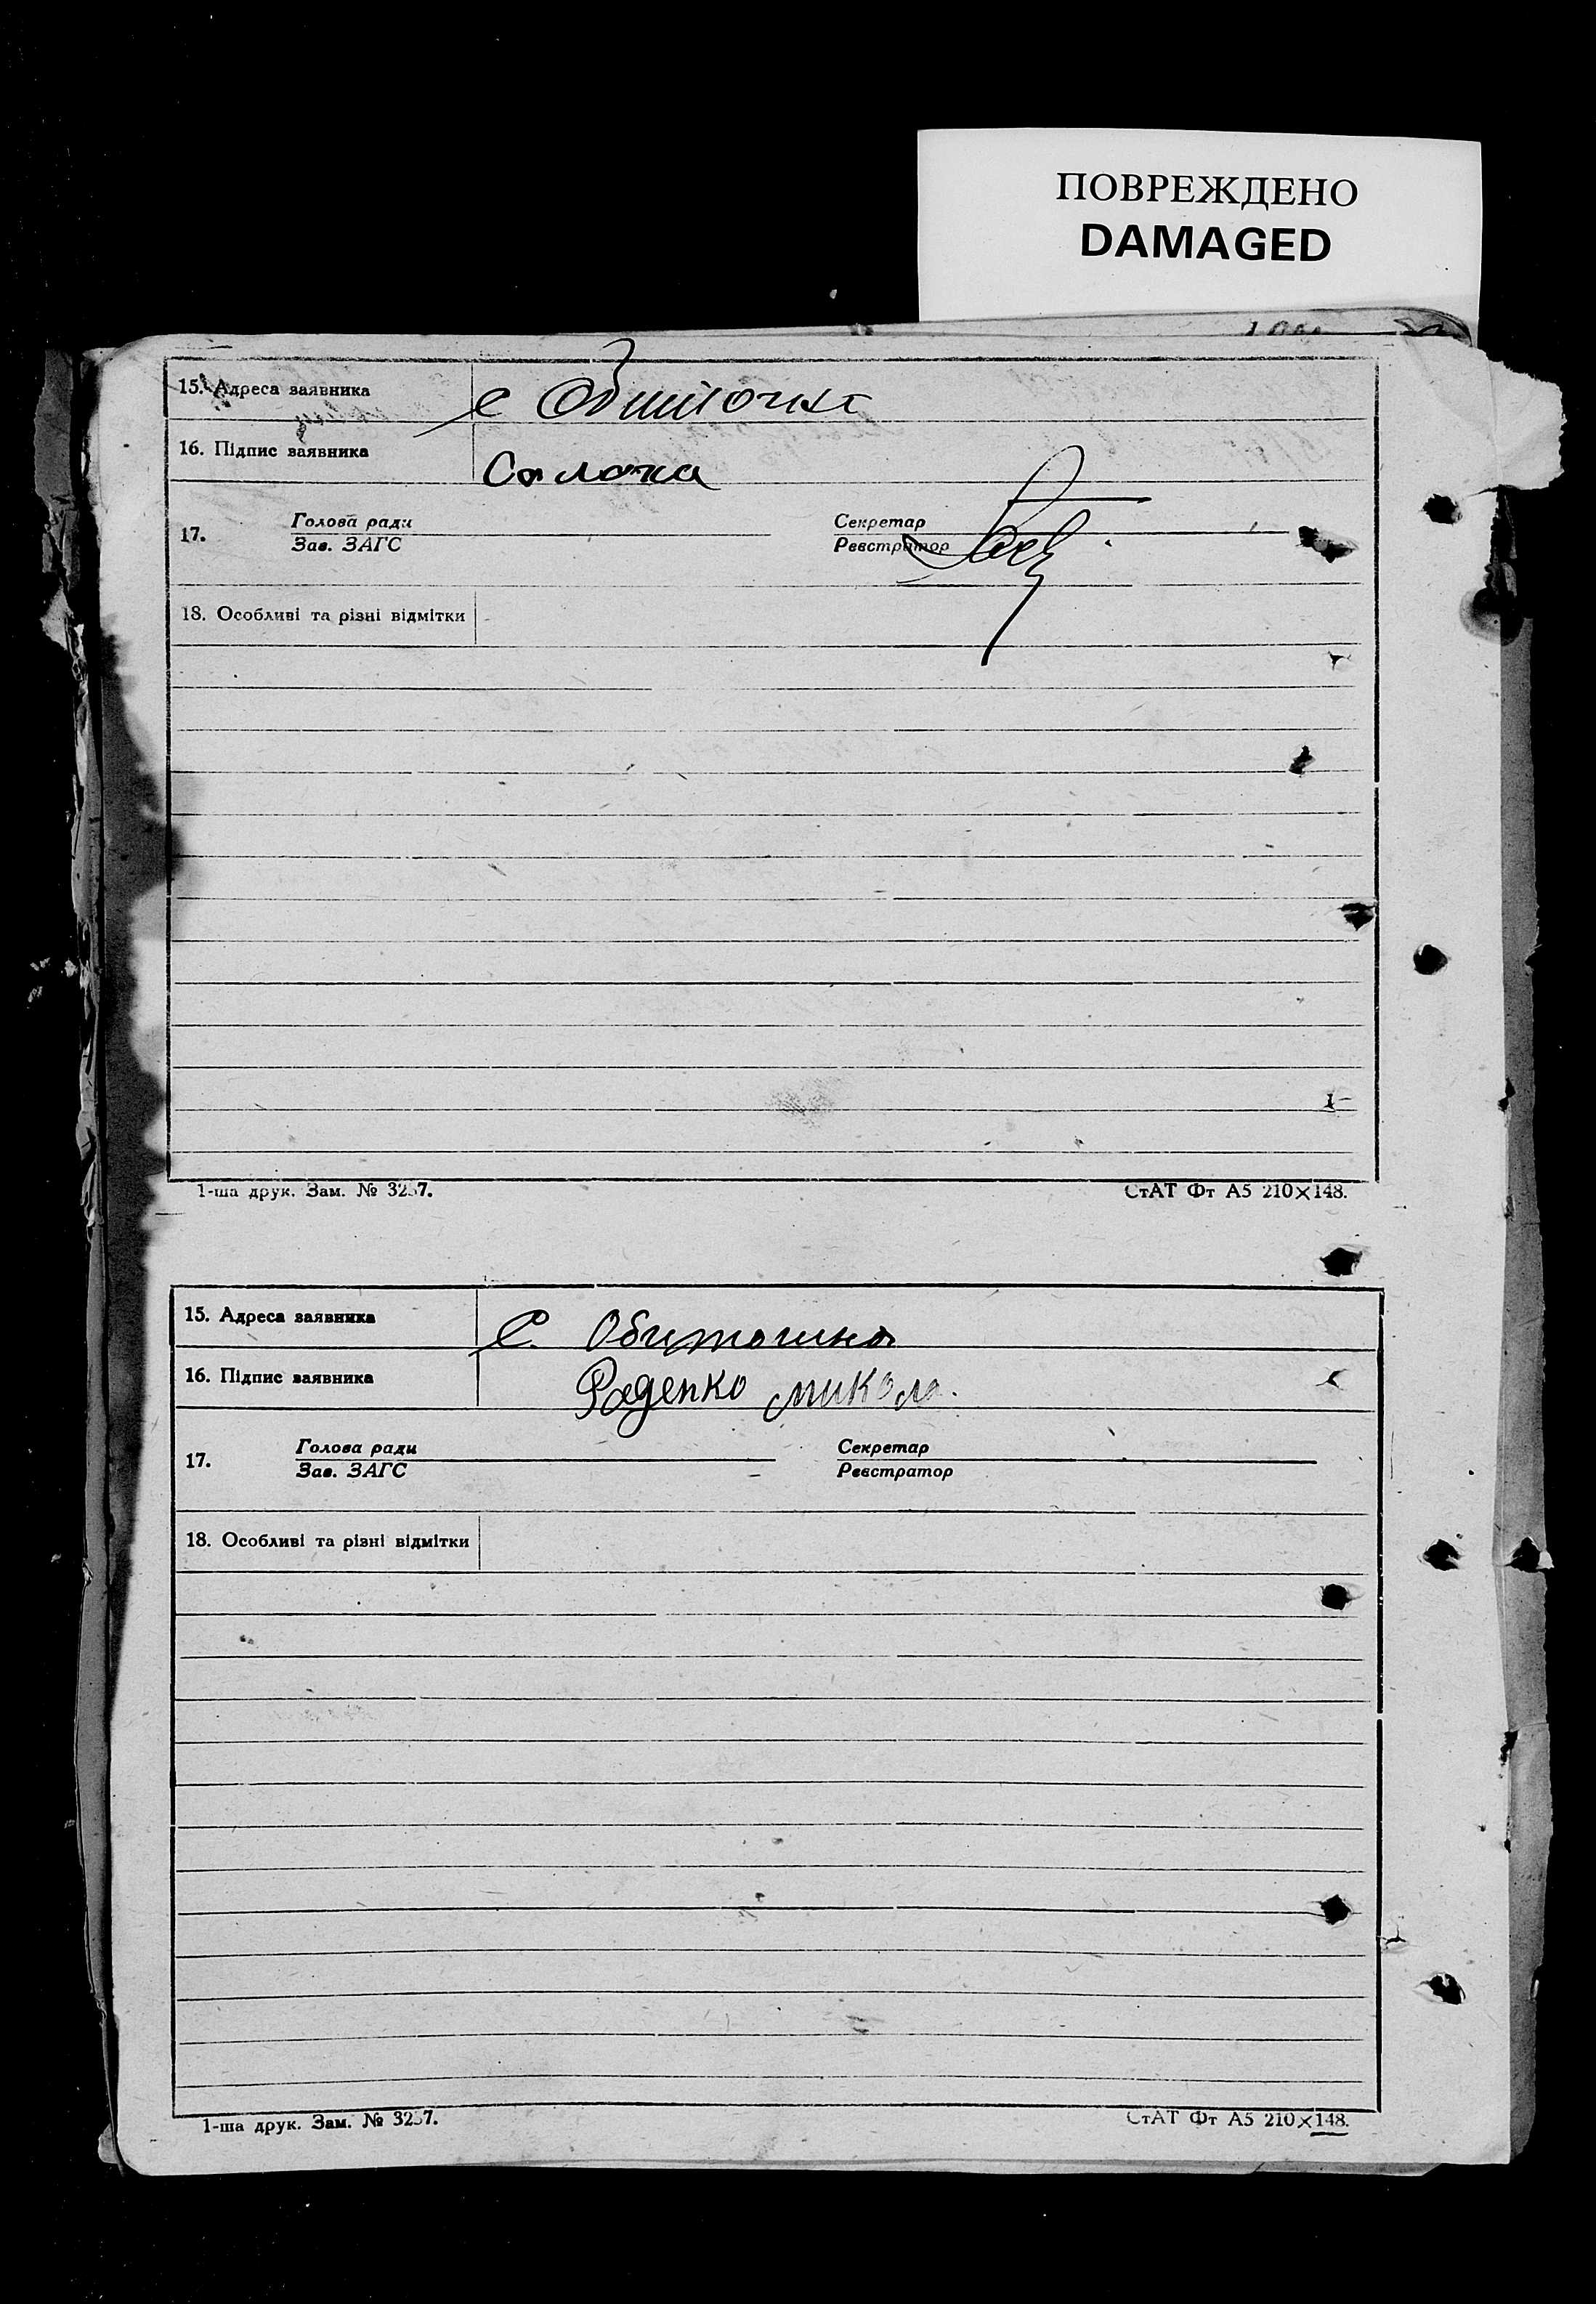 ПОВРЕЖДЕНО
DAMAGED
15. Адреса заявника с Обиточне
16. Підпис заявника
17. Голова ради Секретар
Зав. ЗАГС Реєстратор
18. Особливі та різні відмітки
1-ша друк. Зам. № 3257. СтАТ Фт А5 210×148.
15. Адреса заявника С. Обиточна
16. Підпис заявника Раденко микола.
17. Голова ради Секретар
Зав. ЗАГС Реєстратор
18. Особливі та різні відмітки
1-ша друк. Зам. № 3257. СтАТ Фт А5 210×148.